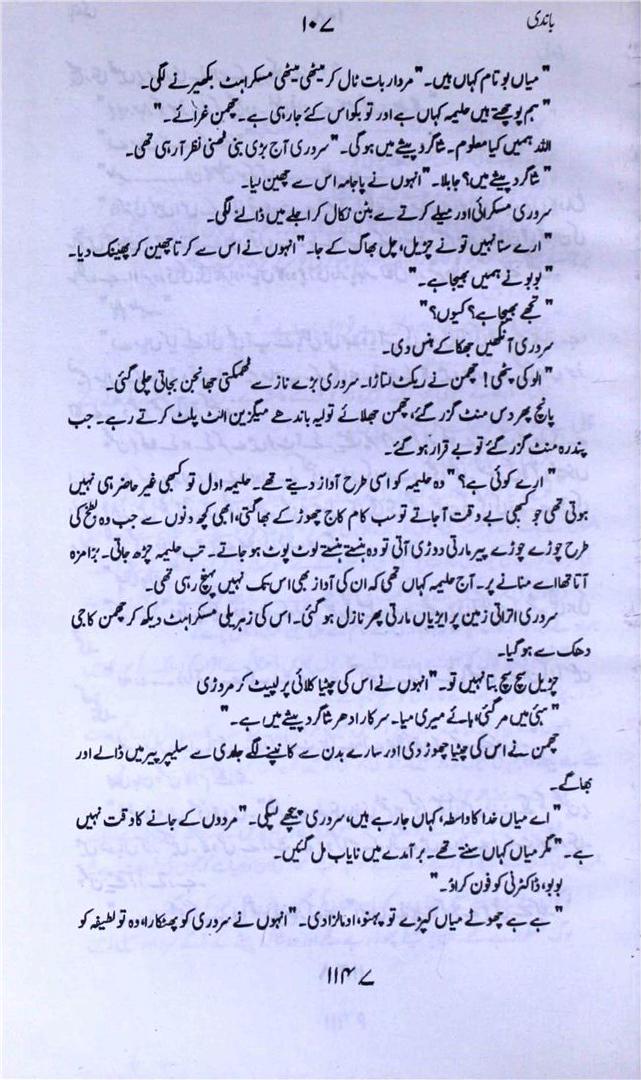 باندی
۱۰۷
"میاں بوتام کہاں ہیں۔" مردار بات ٹال کر میٹھی میٹھی مسکراہٹ بکھیرنے لگی۔
"ہم پوچھتے ہیں حلیمہ کہاں ہے اور تو بکواس کئے جا رہی ہے۔ چھمن غرائے۔"
اللہ ہمیں کیا معلوم۔ شاگرد پیشے میں ہوگی۔" سروری آج بڑی بنی ٹھنی نظر آ رہی تھی۔
"شاگرد پیشے میں؟ جا بلا۔" انہوں نے پاجامہ اس سے چھین لیا۔
سروری مسکرائی اور میلے کرتے سے بٹن نکال کر اجلے میں ڈالنے لگی۔
"ارے سنا نہیں تو نے چڑیل، چل بھاگ کے جا۔" انہوں نے اس سے کرتا چھین کر پھینک دیا۔
"بوبو نے ہمیں بھیجا ہے۔"
"تجھے بھیجا ہے؟ کیوں؟"
سروری آنکھیں جھکا کے ہنس دی۔
"الو کی پٹھی! چھمن نے ریکٹ لتاڑا۔ سروری بڑے ناز سے ٹھمکتی جھانجن بجاتی چلی گئی۔
پانچ پھر دس منٹ گزر گئے، چھمن جھلائے تولیہ باندھے میگزین الٹ پلٹ کرتے رہے۔ جب
پندرہ منٹ گزر گئے تو بے قرار ہو گئے۔
"ارے کوئی ہے؟" وہ حلیمہ کو اسی طرح آواز دیتے تھے۔ حلیمہ اول تو کبھی غیر حاضر ہی نہیں
ہوتی تھی جو کبھی بے وقت آ جاتے تو سب کام کاج چھوڑ کے بھاگتی، ابھی کچھ دنوں سے جب وہ بطخ کی
طرح چوڑے چوڑے پیر مارتی دوڑی آتی تو وہ ہنستے ہنستے لوٹ پوٹ ہو جاتے۔ تب حلیمہ چڑھ جاتی۔ بڑا مزہ
آتا تھا اسے منانے پر۔ آج حلیمہ کہاں تھی کہ ان کی آواز بھی اس تک نہیں پہنچ رہی تھی۔
سروری اتراتی زمین پر ایڑیاں مارتی پھر نازل ہو گئی۔ اس کی زہریلی مسکراہٹ دیکھ کر چھمن کا جی
دھک سے ہو گیا۔
چڑیل سچ سچ بتا نہیں تو۔" انہوں نے اس کی چٹیا کلائی پر لپیٹ کر مروڑی
"سئی میں مر گئی، ہائے میری میا۔ سرکار ادھر شاگرد پیشے میں ہے۔"
چھمن نے اس کی چٹیا چھوڑ دی اور سارے بدن سے کانپنے لگے جلدی سے سلیپر پیر میں ڈالے اور
بھاگے۔
"اے میاں خدا کا واسطہ، کہاں جا رہے ہیں، سروری پیچھے لپکی۔" مردوں کے جانے کا وقت نہیں
ہے۔" مگر میاں کہاں سنتے تھے۔ برآمدے میں نایاب مل گئیں۔
بوبو، ڈاکٹرنی کو فون کراؤ۔"
"ہے ہے چھوٹے میاں کپڑے تو پہنو، اد مالزادی۔" انہوں نے سروری کو پھٹکارا، وہ تو لطیفہ کو
۱۱۴۷